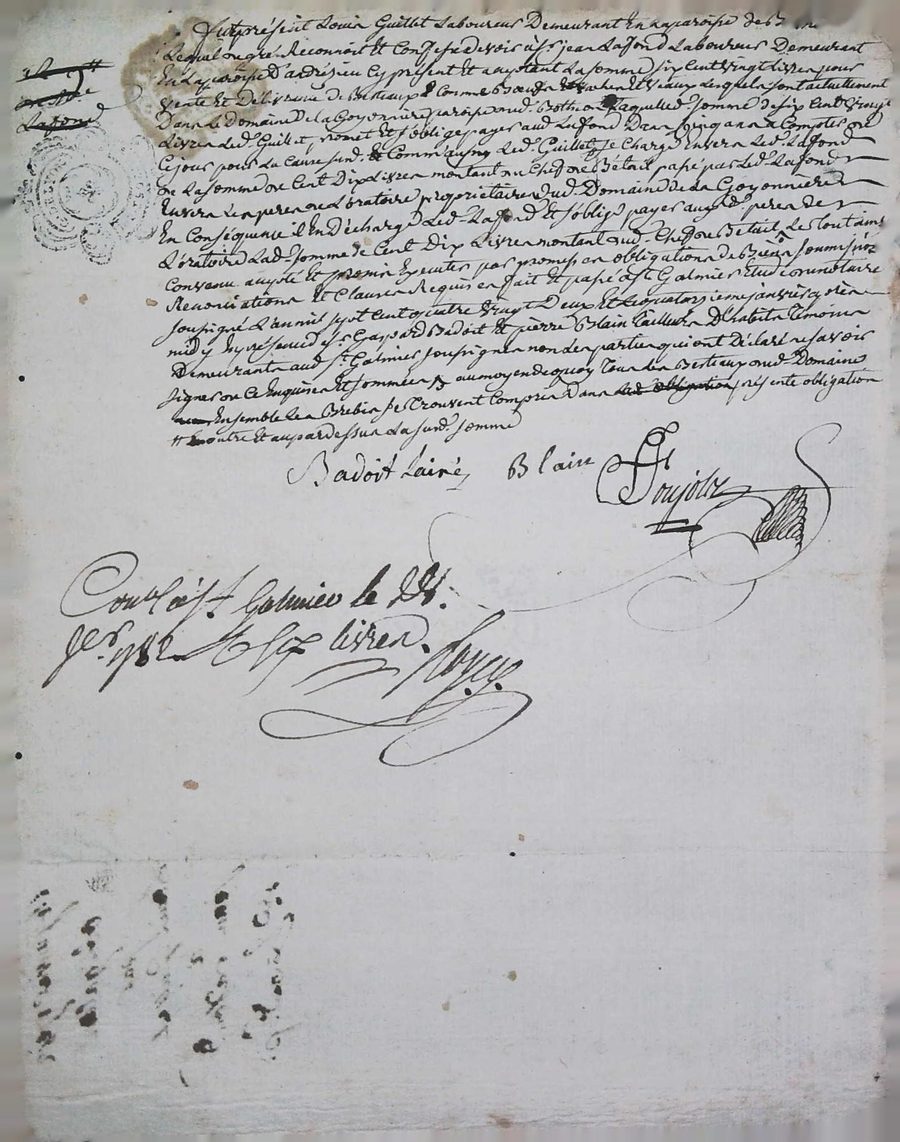 Fut présent Louis Guillet Laboureur Demeurant En La paroisse de St
Lequel de gré Reconnoit Et Confesse devoir à Sr jean Laffond Laboureur Demeurant
En La paroisse D'andrésieu Cy présent Et aceptant La somme Six Cent Vingt Livres pour
Vente Et Délivrance de Bestiaux Comme Bœufs Vaches et Veaux Lesquels sont actuellement
Dans Le Domaine De la Goyonniere paroisse dud. Bothéon Laquelle d. somme de six Cent Vingt
Livres Led. Guillet promet Et s'oblige payer aud. Laffond Dans Cinq ans a Compter de
Ce jour pour La Cause susd. Et Comme aussy Led. Guillet Se Charge Envers Led. Laffond
De La somme de Cent Dix Livres montant du Chef de Bétail passé par Led. Laffond
Envers Les peres de L'oratoire propriétaires dud. Domaine de La Goyonnière
En Conséquence il En Décharge Led. Laffond Et s'oblige payer auxd. peres de
L'oratoire Lad. somme de Cent Dix Livres montant dud. Chef de Bétail Le tout ainsi
Convenu accepté Et promis Executer par promesses obligations de Biens soumissions
Renonciations Et Clauses Requises fait Et passé a St Galmier Etude du notaire
soussigné L'an mil sept cent quatre Vingt Deux Et Le quatorzieme janvier après
midy En présence de Sr Gaspard Badoit Et pierre Blain tailleur D'habits témoins
Demeurants aud. St Galmier soussignés non les parties qui ont Déclaré ne savoir
signer de Ce Enquises Et sommées au moyen de quoy Tous Les Bestiaux dud. Domaine
Ensemble Les Brebis se trouvent Compris Dans présente obligation
En outre Et au par dessus La susd. somme
Badoit Lainé Blain
Poujols
Conlé à St. Galmier le
Jer 1782 livres.